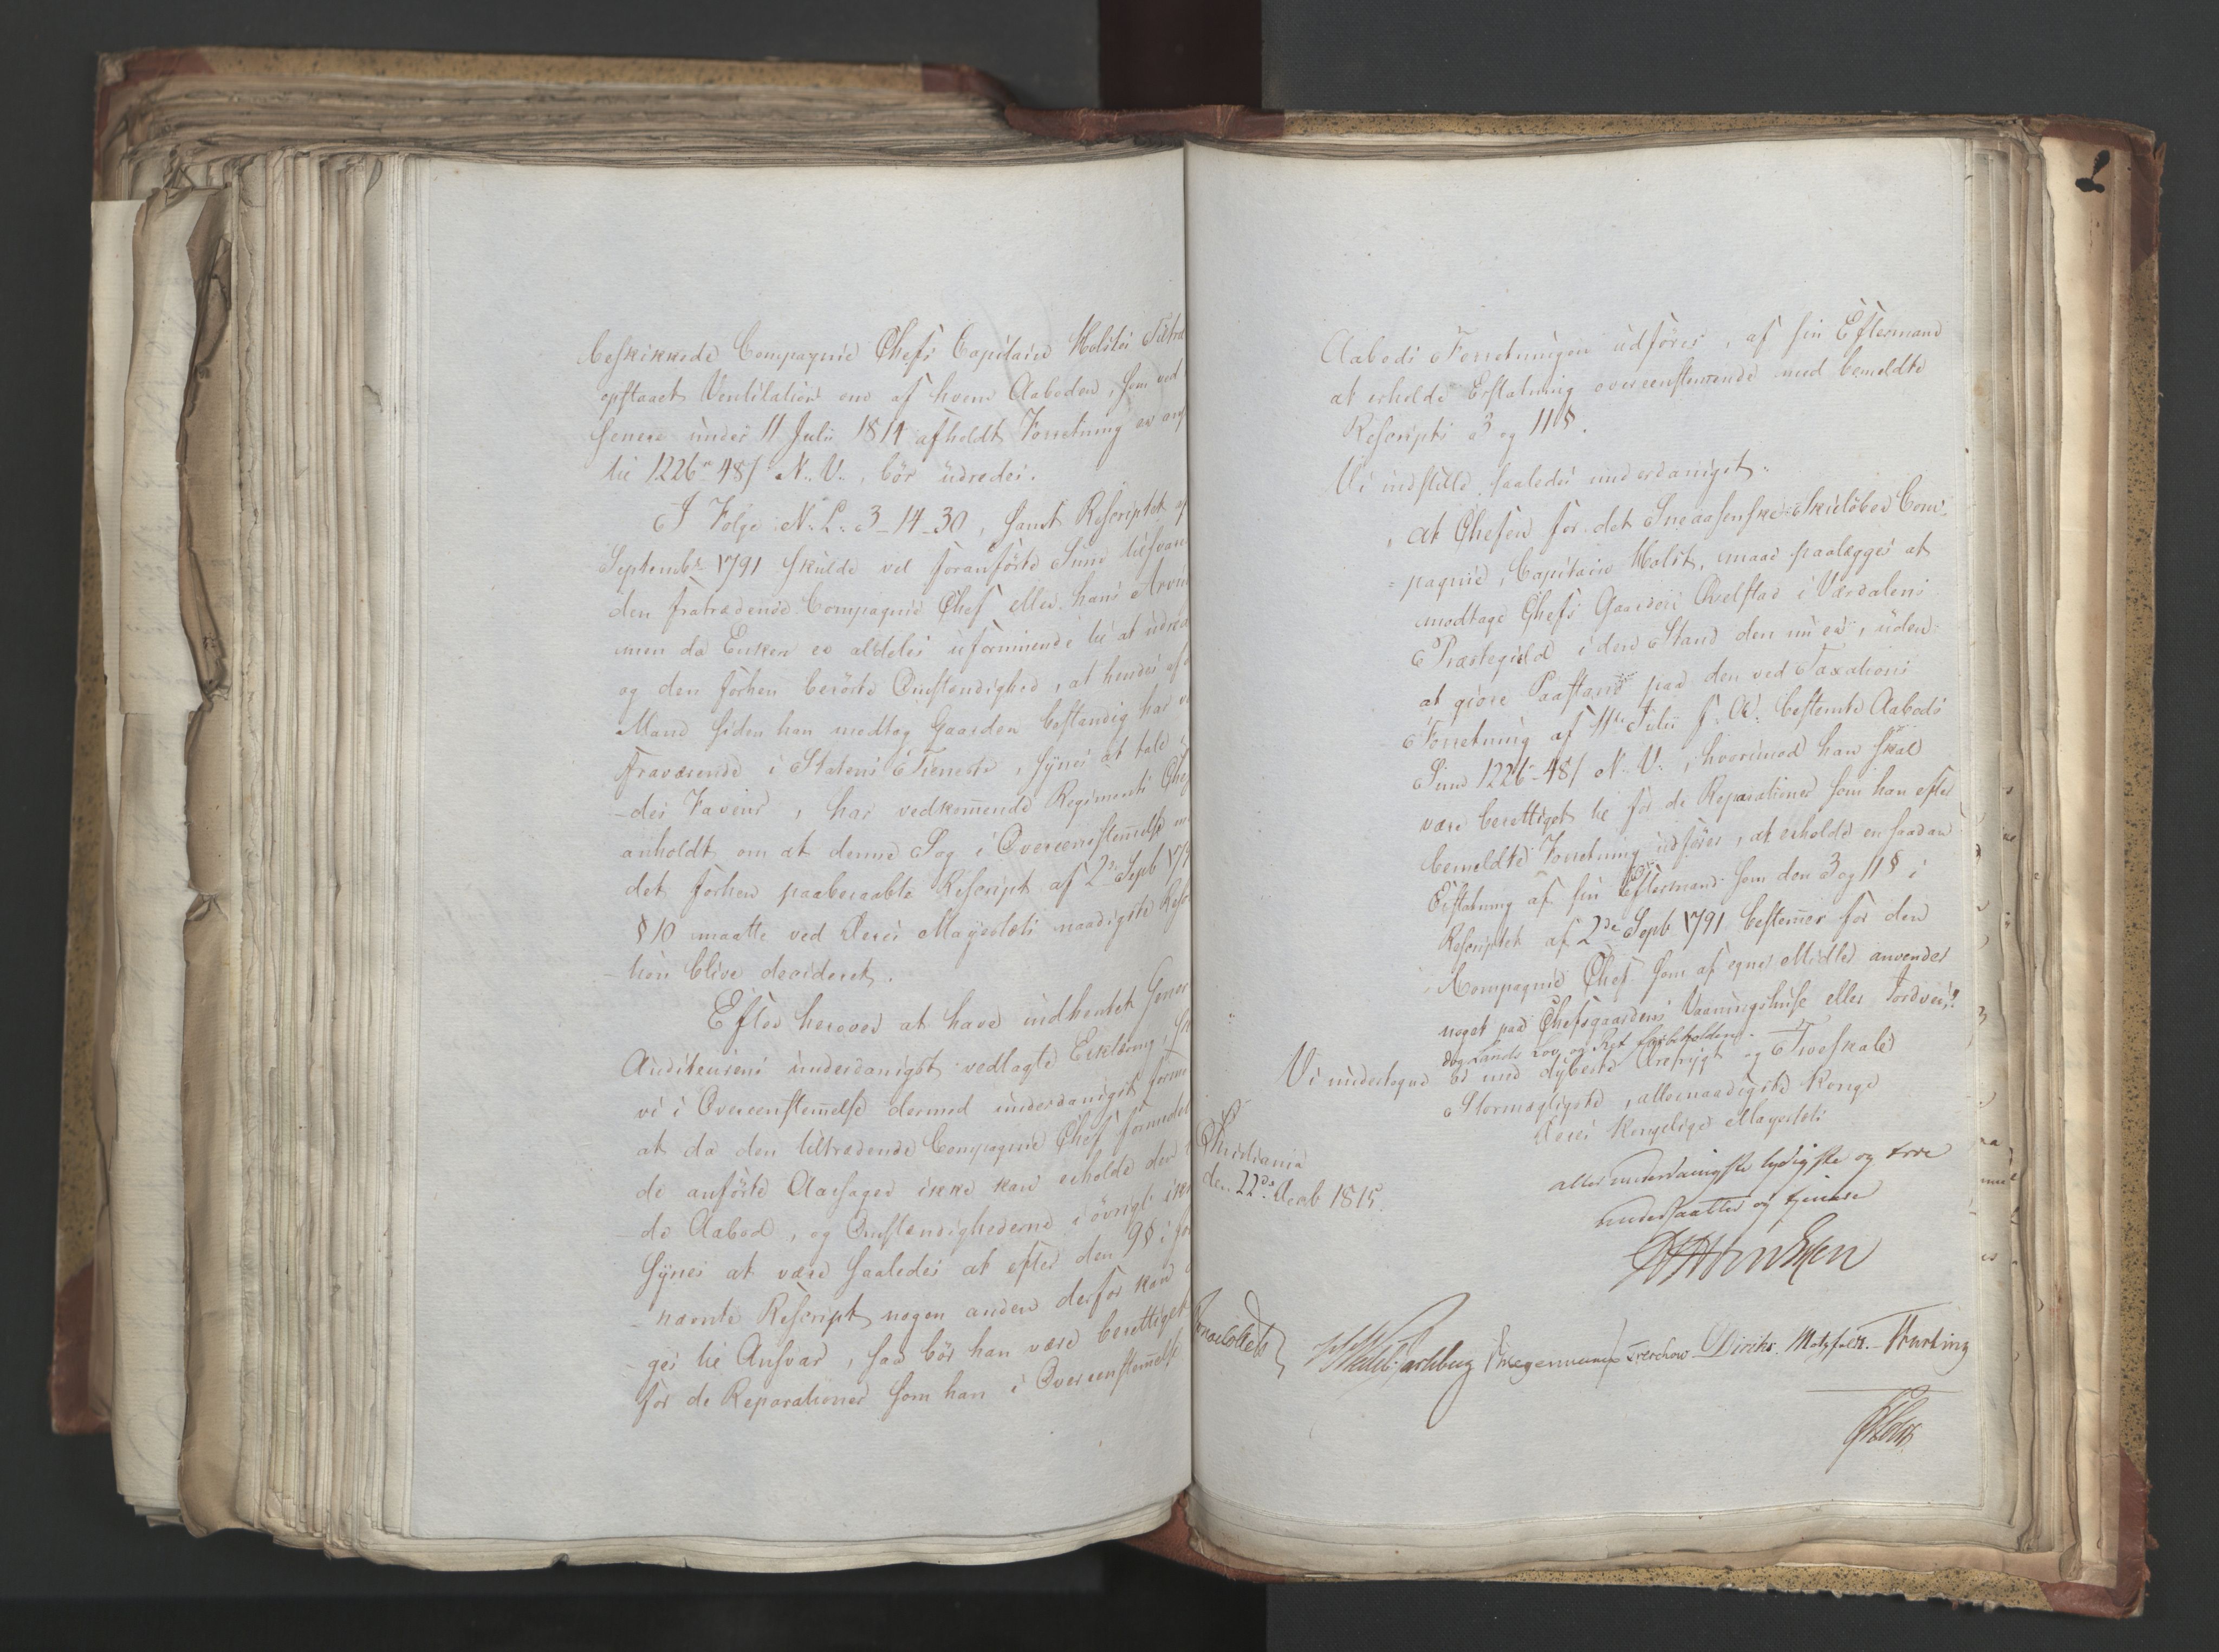 beskikkede Compagnie Chefs Capitain Holsts Tiltræ
opstaaet Ventilation om af hvem Aaboden, som ved
senere under 11 Julii 1814 afholdt Forretning er
til 1226 r 48 s N. V., bör üdredes.
I Folge N: L: 3-14-30, samt Rescriptet
Septembr 1791 skulde ved foranförte Sum tilsvar
den fratrædende Compagnie Chef eller hans Arvin
men da Enken er aldeles uformuende til at üdred
og den forhen berörte Omstændighed, at hendes
Mand siden han modtog Gaarden bestandig har
fraværende i Statens Tieneste, synes at tale
-des Faveur, har vedkommende Regiments Chef
anholdt om at denne Sag i Overeensstemmelse
det forhen paaberaabte Rescript af 2de Sept 179
§ 10 maatte ved Deres Mayestæts naadigste Reso
-tion blive decideret.
Efter herover at have indhentet Gener
Auditeurens underdanigst vedlagte Erklæring,
vi i Overeenstemmelse dermed underdanigst forme
at da den tiltrædende Compagnie Chef formedel
de anförte Aarsager ikke kan erholde den
de Aabod, og Omstændighederne i övrigt ikke
synes at være saaledes at efter den 9 § i for
-nævnte Rescript nogen anden derfor kan
-ges til Ansvar, saa bör han være berettiget
for de Reparationer som han i Overeenstemmelse
Aabods Forretningen udförer, af sin Eftermand
at erholde Erstatning overeenstemmende med bemeldte
Rescripts 3 og 11 §.
Vi indstille saaledes underdanigst:
at Chefen for det Snaasenske Skielöber Com-
=pagnie, Capitain Holst, maae paalægges at
modtage Chefs Gaarden Qvelstad i Værdalens
Præstegield i den Stand den nu er, uden
at giöre Paastand paa den ved Taxations
Forretning af 11te Julii f: A: bestemte Aabods
Sum 1226 r 48 s N. V., hvorimod han skal
være berettiget til for de Reparationer som han efter
bemeldte Forretning udförer, at erholde en saadan
Erstatning af sin Eftermand som den 3 og 11 § i
Rescriptet af 2de Sept 1791 bestemmer for den
Kompagnie Chef som af egne Midler anvender
noget paa Chefsgaardens Vaaningshuse eller Jordvei,?
dog Lands Lov og Ret forbeholden.
Vi undertegne os med dybeste Ærefrygt og Troeskab
Stormægtigste, allernaadigste Konge
Deres Kongelige Mayestæts
allerunderdanigste lydigste og troe
undersaatter og tjenere
Christiania
den 22de Decb 1815.
Treschow Diriks. Motzfeldt.